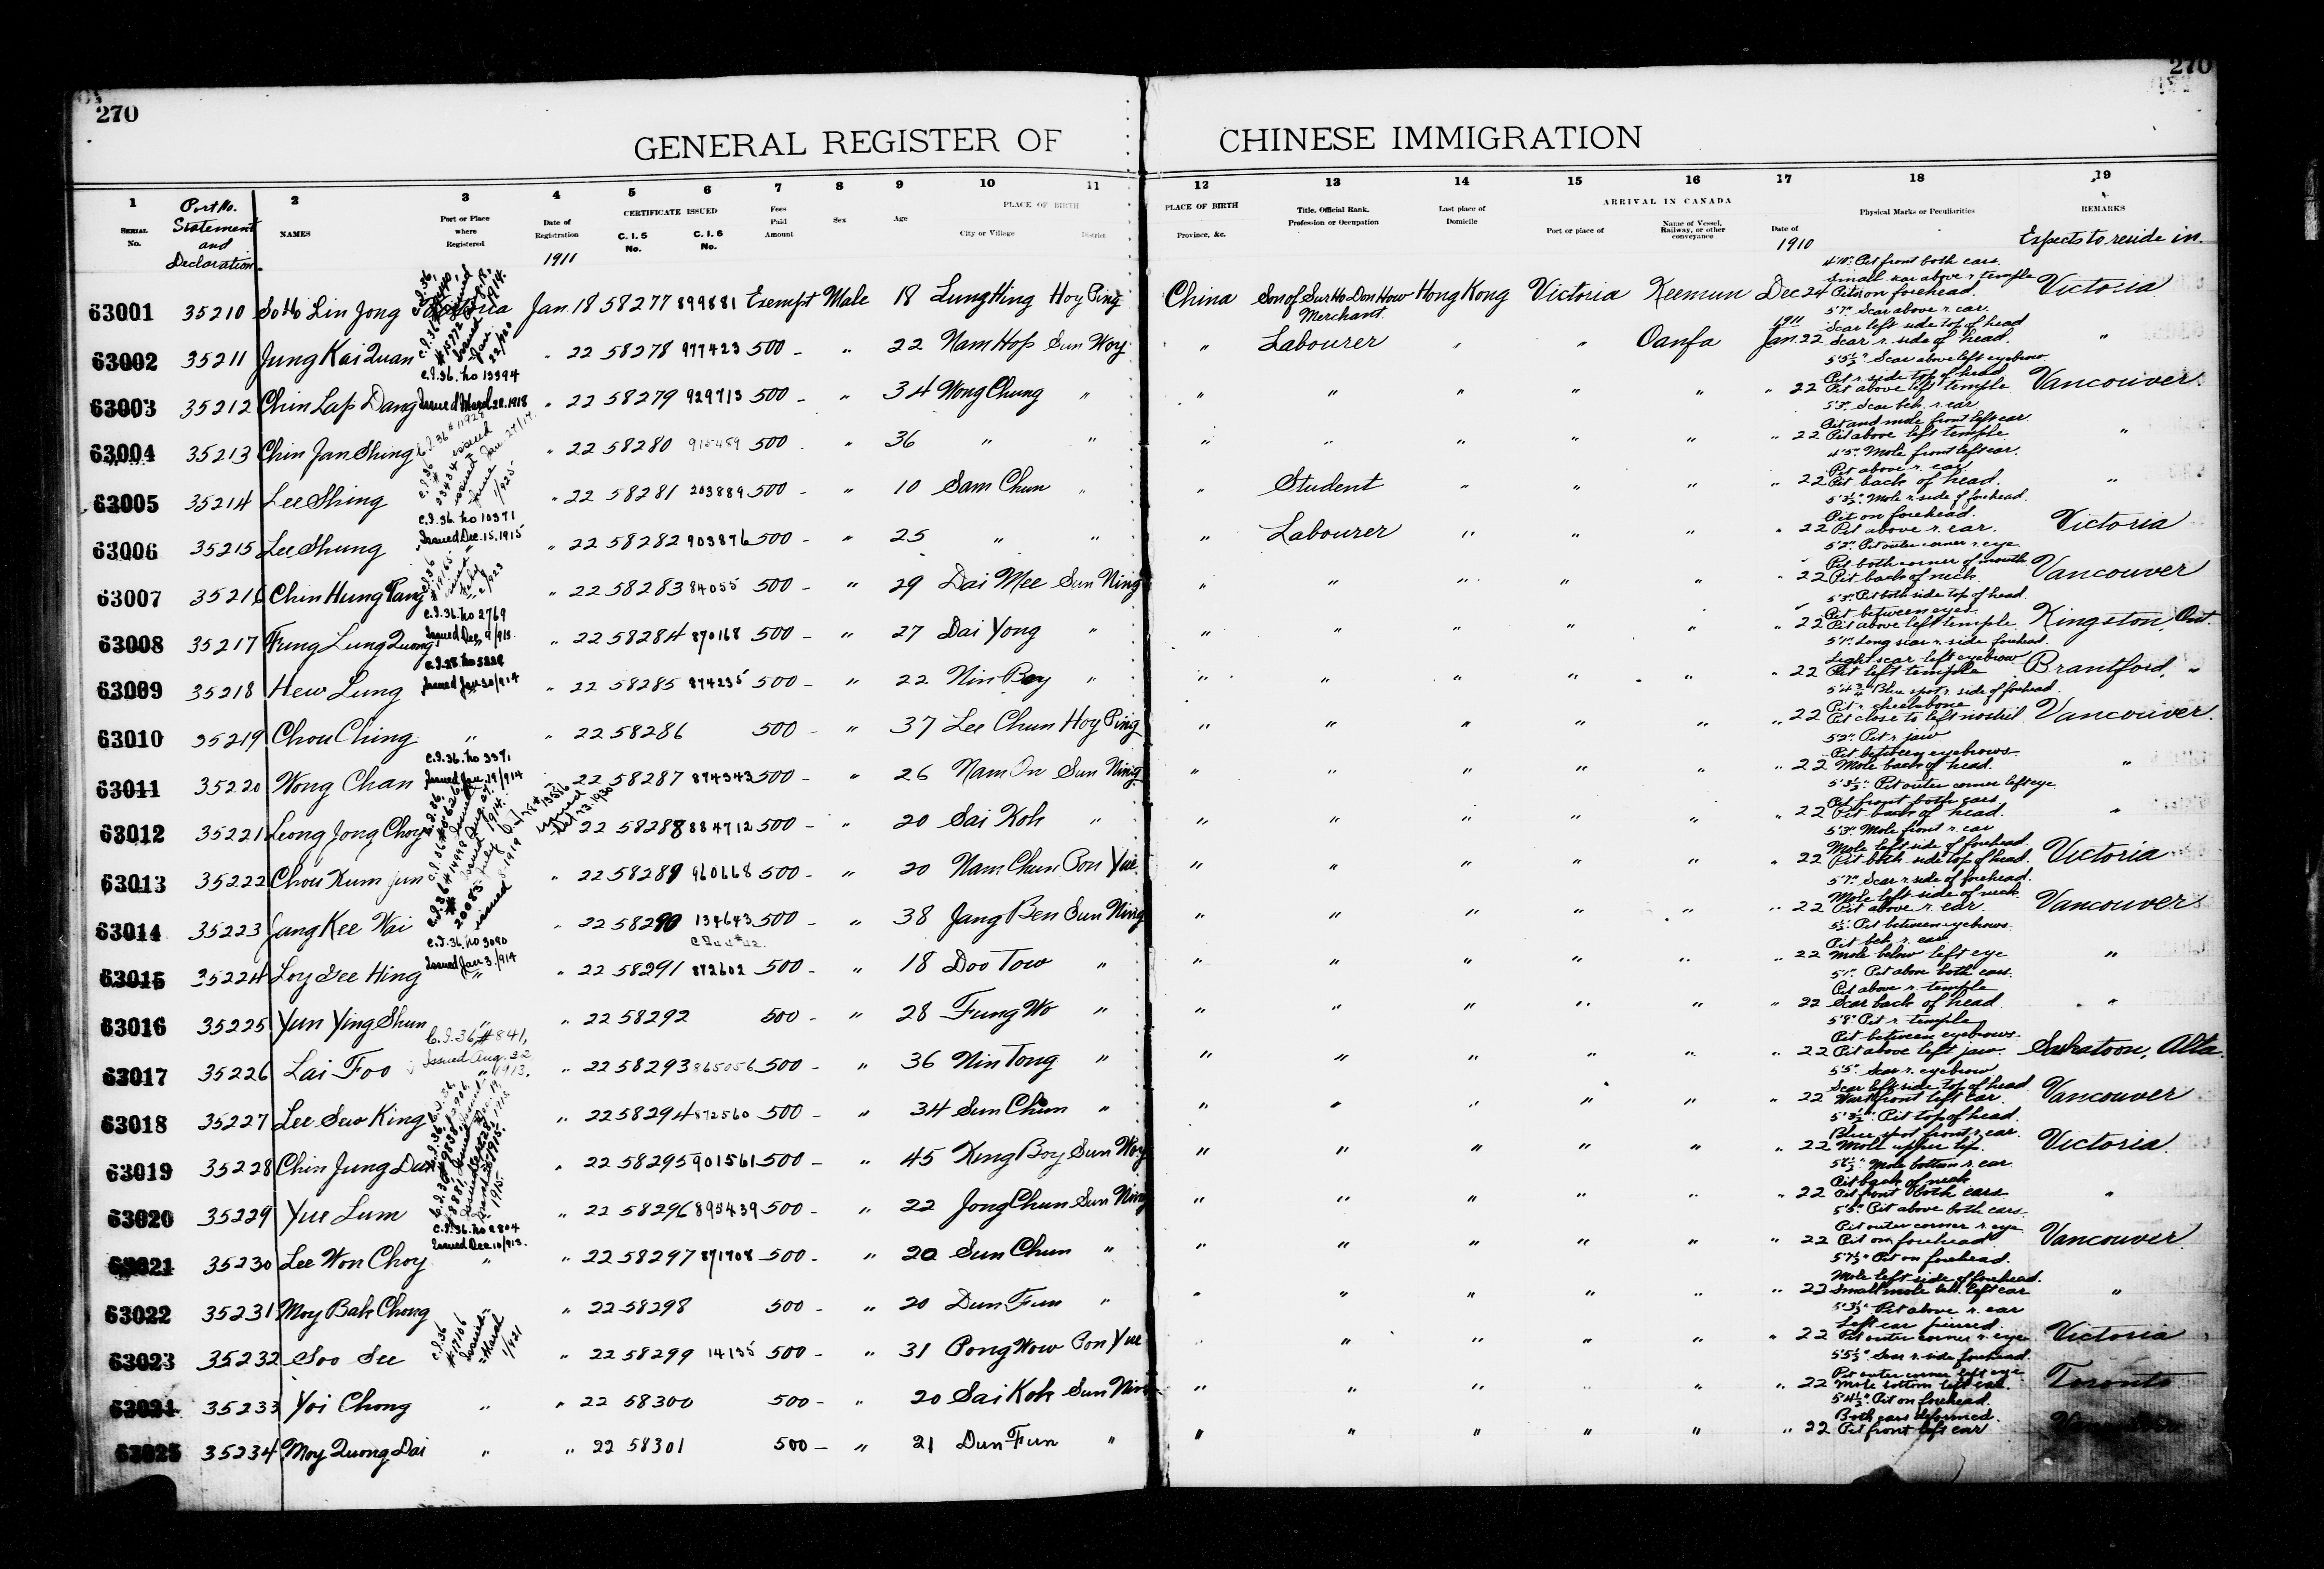 270
270
GENERAL REGISTER OF CHINESE IMMIGRATION
1 2 3 4 5 6 7 8 9 10 11 12 13 14 15 16 17 18 19
SERIAL No. Port No. Statement and Declaration. NAMES Port or Place where Registered Date of Registration CERTIFICATE ISSUED C. I. 5 No. C. I. 6 No. Fees Paid Amount Sex Age PLACE OF BIRTH City or Village District PLACE OF BIRTH Province, &c. Title, Official Rank, Profession or Occupation Last place of Domicile ARRIVAL IN CANADA Port or place of Name of Vessel, Railway, or other conveyance Date of Physical Marks or Peculiarities REMARKS
1911 1910 Expects to reside in.
4'10" Pit front both ears.
Small scar above r temple
63001 35210 So Ho Lin Jong Victoria Jan. 18 58277 899881 Exempt Male 18 Lung Hing Hoy Ping China Son of Sur Ho Don How Merchant. Hong Kong Victoria Keemun Dec 24 Pits on forehead. Victoria
5'7" Scar above r. ear.
1911 Scar left side top of head
63002 35211 Jung Kai Quan " 22 58278 977423 500 - " 22 Nam Hop Sun Woy " Labourer " " Oanfa Jan. 22 Scar r. side of head. "
C.I.36. No 13394
5'5½" Scar above left eyebrow
Pit r. side top of head
63003 35212 Chin Lap Dang Issued March 28.1918 " 22 58279 929713 500 - " 34 Wong Chung " " " " " " " 22 Pit above left temple Vancouver
5'3" Scar beh. r. ear
Pit and mole front left ear
63004 35213 Chin Jan Shing " 22 58280 915489 500 " 36 " " " " " " " " 22 Pit above left temple "
4'5" Mole front left ear.
Pit above r. ear
63005 35214 Lee Shing " 22 58281 203889 500 - " 10 Sam Chun " " Student " " " " 22 Pit back of head. "
C.I.36. No 10371
5'3½" Mole r. side of forehead.
Pit on forehead.
63006 35215 Lee Shung Issued Dec. 15. 1915 " 22 58282 903876 500 - " 25 " " " Labourer " " " " 22 Pit above r. ear. Victoria
5'2" Pit outer corner r. eye
Pit both corner of mouth
63007 35216 Chin Hung Pang " 22 58283 84055 500 - " 29 Dai Mee Sun Ning " " " " " " 22 Pit back of neck. Vancouver
C.I.36. No 2769
5'3" Pit both side top of head.
Pit between eyes.
63008 35217 Fung Lung Quong Issued Dec. 9/913. " 22 58284 870168 500 - " 27 Dai Yong " " " " " " " 22 Pit above left temple Kingston, Ont.
5'1" Long scar r. side forehead.
Light scar left eyebrow
63009 35218 Hew Lung Issued Jan 30/914 " 22 58285 874235 500 - " 22 Nin Bay " " " " " " " 22 Pit left temple Brantford, "
5'4¾" Blue spot r. side of forehead.
Pit r. cheekbone
63010 35219 Chou Ching " " 22 58286 500 - " 37 Lee Chun Hoy Ping " " " " " " 22 Pit close to left nostril Vancouver.
C.I.36. No 3371
5'2" Pit r. jaw
Pit between eyebrows.
63011 35220 Wong Chan Issued Jan. 19/914 22 58287 874343 500 - " 26 Nam On Sun Ning " " " " " " 22 Mole back of head. "
5'3½" Pit outer corner left eye
Pit front both ears.
63012 35221 Leong Jong Choy 22 58288 884712 500 - " 20 Sai Koh " " " " " " " 22 Pit back of head. "
5'3" Mole front r. ear
Mole left side of forehead.
63013 35222 Chou Kum Jun " 22 58289 960668 500 - " 20 Nam Chun Pon Yue " " " " " " 22 Pit both side top of head. Victoria
5'7" Scar r. side of forehead.
Mole left side of neck.
63014 35223 Jang Kee Wai " 22 58290 134643 500 - " 38 Jang Ben Sun Ning " " " " " " 22 Pit above r. ear. Vancouver
C.I.36. No 3090
5½" Pit between eyebrows.
Pit beh. r. ear
63015 35224 Loy Dee Hing Issued Jan 3./914 " 22 58291 872602 500 - " 18 Doo Tow " " " " " " " 22 Mole below left eye "
5'1" Pit above both ears.
Pit above r. temple
63016 35225 Yun Ying Shun " " 22 58292 500 - " 28 Fung Wo " " " " " " " 22 Scar back of head "
C.I.36, #841,
5'8" Pit r. temple
Issued Aug. 22
Pit between eyebrows.
63017 35226 Lai Foo " 1913. " 22 58293 865056 500 - " 36 Nin Tong " " " " " " " 22 Pit above left jaw. Saskatoon, Alta.
5'5" Scar r. eyebrow
Scar left side top of head
63018 35227 Lee Sew King " 22 58294 872560 500 - " 34 Sun Chun " " " " " " " 22 Wart front left ear. Vancouver
5'3½" Pit top of head.
Blue spot front r. ear.
63019 35228 Chin Jung Dan " 22 58295 901561 500 - " 45 King Boy Sun Woy " " " " " " 22 Mole upper lip. Victoria
Mole bottom r. ear
Pit back of neck
63020 35229 Yue Lum " 22 58296 895439 500 - " 22 Jong Chun Sun Ning " " " " " " 22 Pit front both ears. "
C.I.36. No 2804
5'5" Pit above both ears.
Issued Dec. 10/913.
Pit outer corner r. eye
63021 35230 Lee Won Choy " " 22 58297 871708 500 - " 20 Sun Chun " " " " " " " 22 Pit on forehead Vancouver
5'7½" Pit on forehead.
Mole left side of forehead.
63022 35231 Moy Bak Chong " " 22 58298 500 - " 20 Dun Fun " " " " " " " 22 Small mole beh. left ear "
5'3½" Pit above r. ear
Left ear pierced.
63023 35232 Soo See C.I.36 #17106 Issued March 1/921 " 22 58299 14135 500 - " 31 Pong Wow Pon Yue " " " " " 22 Pit outer corner r. eye Victoria
5'5½" Scar r. side forehead.
Pit outer corner left eye
63024 35233 Yoi Chong " " 22 58300 500 - " 20 Sai Koh Sun Ning " " " " " " 22 Mole bottom left ear. Toronto
5'4½" Pit on forehead.
Both ears deformed.
63025 35234 Moy Quong Dai " " 22 58301 500 - " 21 Dun Fun " " " " " " " 22 Pit front left ear Vancouver